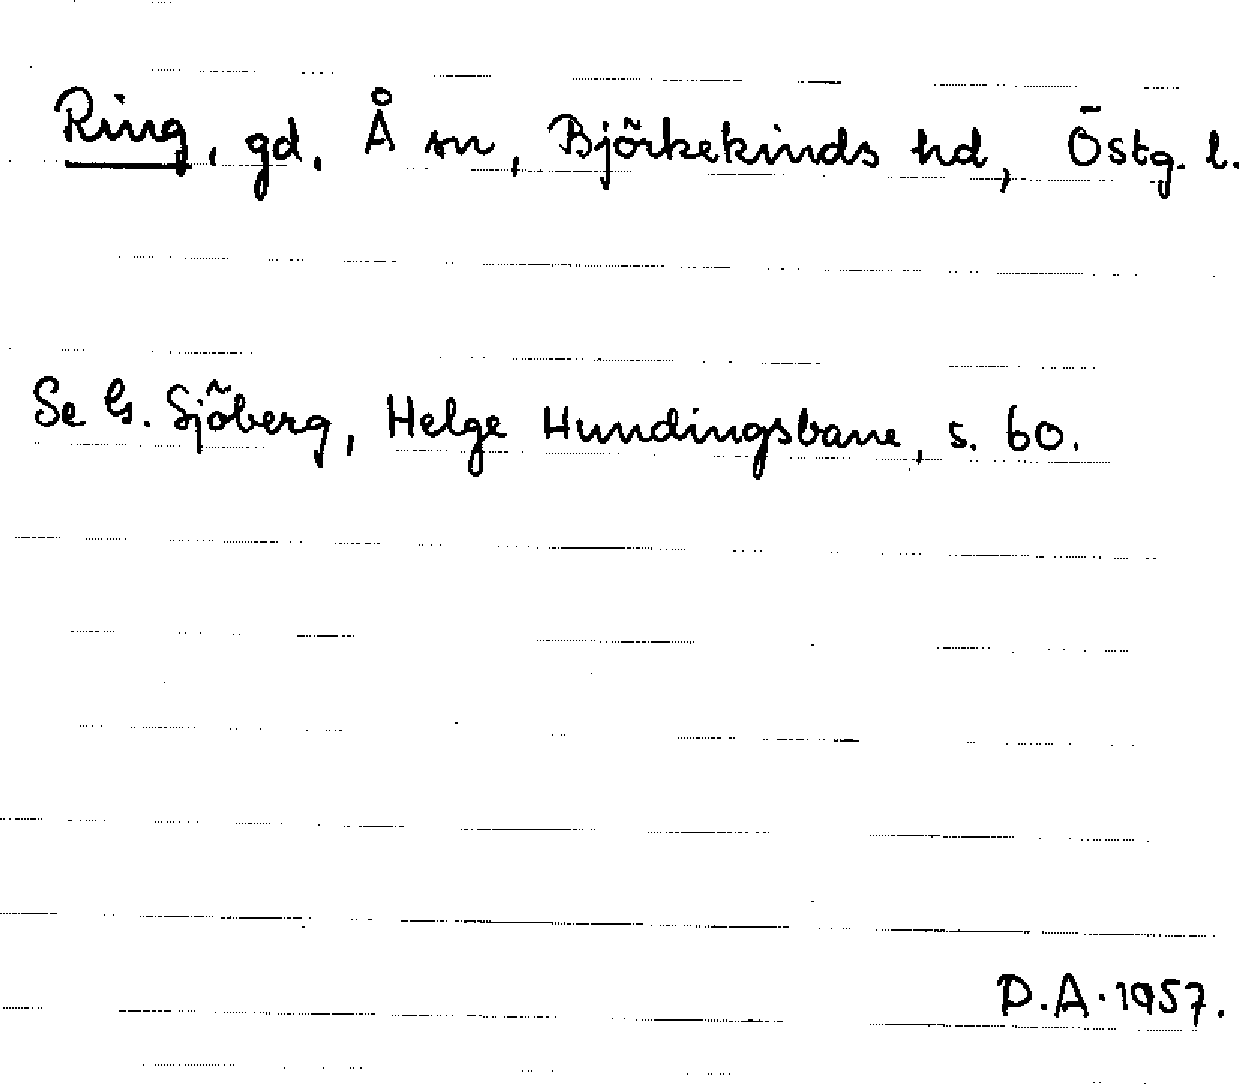 Ring, gd, Å sn, Björkekinds hd, Östg. l.
Se G. Sjöberg, Helge Hundingsbane, s. 60.
P.A. 1957.